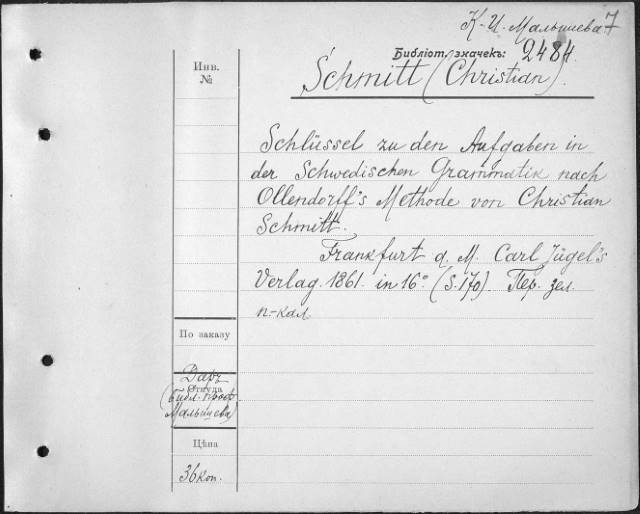 К-И-Малышева 7
Библіот. значекъ: 2484.
Инв.
№
Schmitt (Christian).
Schlüssel zu den Aufgaben in
der Schwedischen Grammatik nach
Ollendorff's Methode von Christian
Schmitt.
Frankfurt a. M. Carl Jügel's
Verlag. 1861. in 16° (S. 170) Пер. зел.
п-кал
По заказу
Даръ
Откуда
(библ. проф.
Малышева)
Цѣна
36 коп.